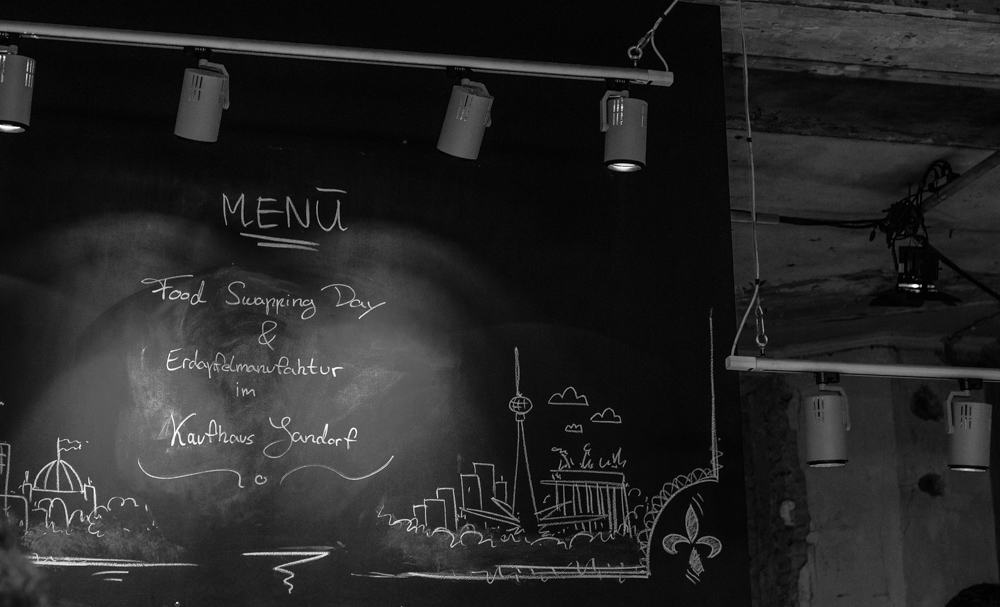 MENŪ
Food Swapping Day
&
Erdapfelmanufaktur
im
Kaufhaus Jandorf